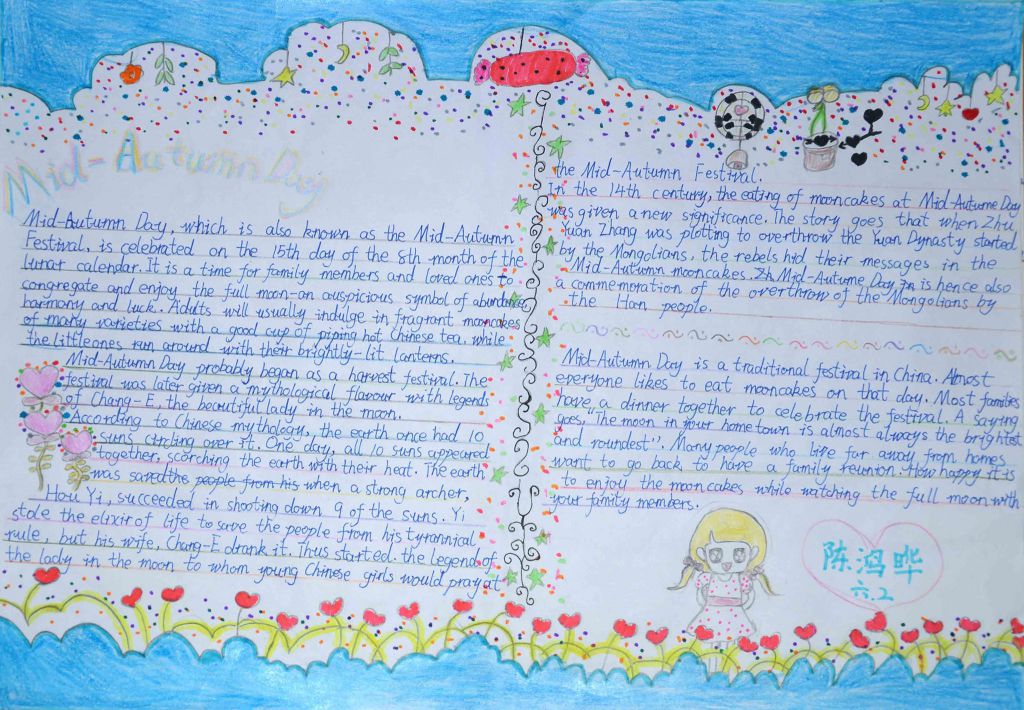 Mid-Autumn Day
Mid-Autumn Day, which is also known as the Mid-Autumn
Festival, is celebrated on the 15th day of the 8th month of the
lunar calendar. It is a time for family members and loved ones to
congregate and enjoy the full moon-an auspicious symbol of abundance,
harmony and luck. Adults will usually indulge in fragrant mooncakes
of many varieties with a good cup of piping hot Chinese tea, while
the little ones run around with their brightly-lit lanterns.
Mid-Autumn Day probably began as a harvest festival. The
festival was later given a mythological flavour with legends
of Chang-E, the beautiful lady in the moon.
According to Chinese mythology, the earth once had 10
suns circling over it. One day, all 10 suns appeared
together, scorching the earth with their heat. The earth
was saved the people from his when a strong archer,
Hou Yi, succeeded in shooting down 9 of the suns. Yi
stole the elixir of life to save the people from his tyrannical
rule, but his wife, Chang-E drank it. Thus started the legend of
the lady in the moon to whom young Chinese girls would pray at
the Mid-Autumn Festival.
In the 14th century, the eating of mooncakes at Mid-Autumn Day
was given a new significance. The story goes that when Zhu
Yuan Zhang was plotting to overthrow the Yuan Dynasty started
by the Mongolians, the rebels hid their messages in the
Mid-Autumn mooncakes. Mid-Autumn Day is hence also
a commemoration of the overthrow of the Mongolians by
the Han people.
Mid-Autumn Day is a traditional festival in China. Almost
everyone likes to eat mooncakes on that day. Most families
have a dinner together to celebrate the festival. A saying
goes, "The moon in your hometown is almost always the brightest
and roundest". Many people who live far away from homes
want to go back to have a family reunion. How happy it is
to enjoy the mooncakes while watching the full moon with
your family members.
陈鸿晔
六.2